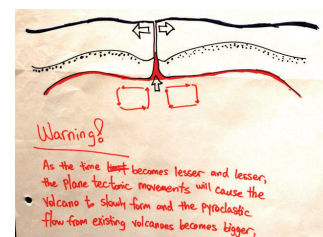 Warning!
As the time becomes lesser and lesser,
the plane tectonic movements will cause the
volcano to slowly form and the pyroclastic
flow from existing volcanoes becomes bigger,